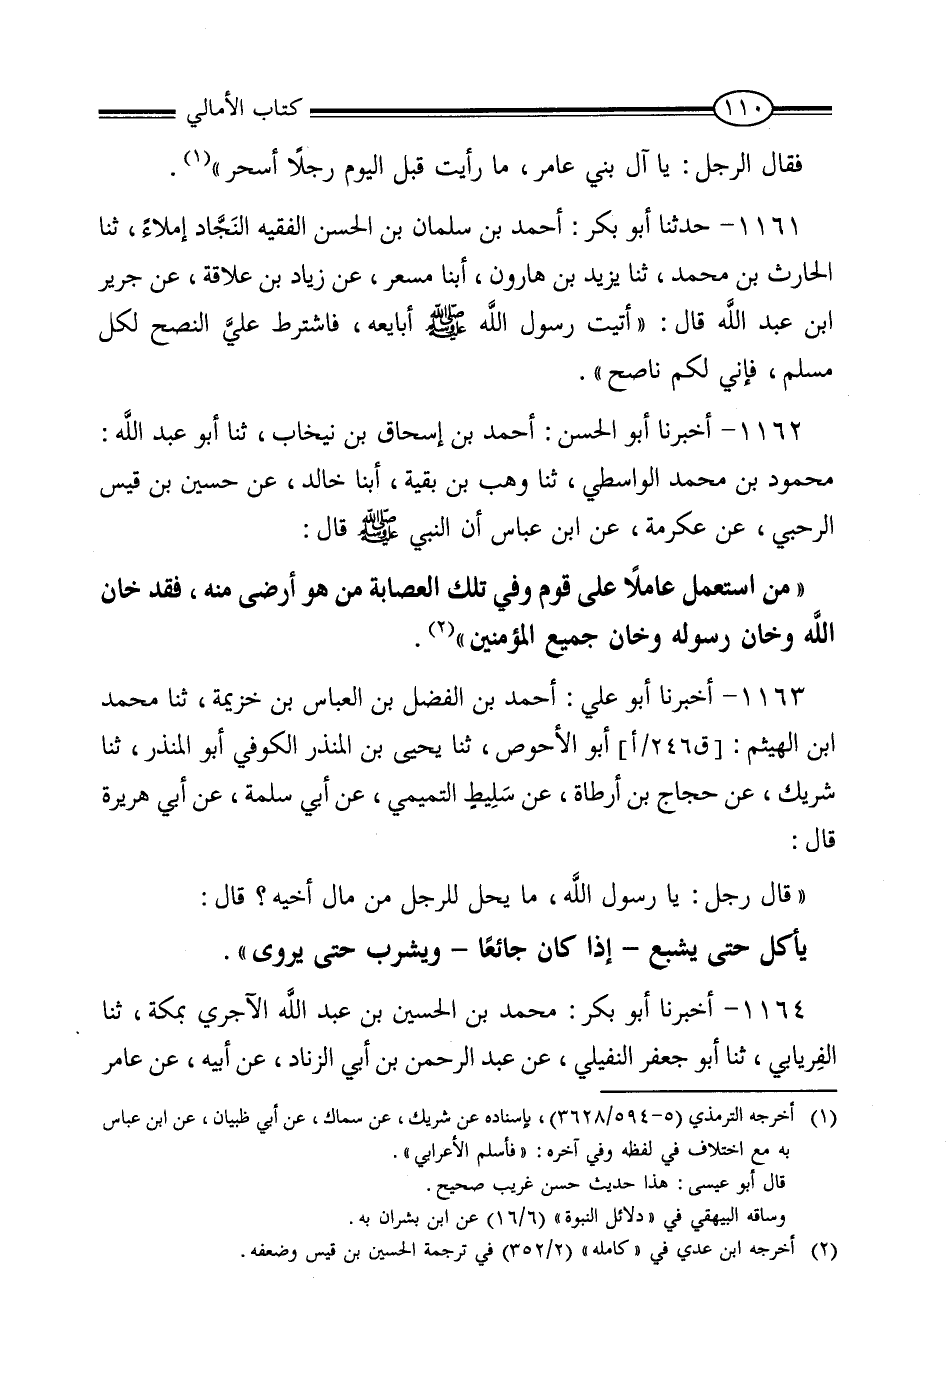 ١١٠ كتاب الأمالي
فقال الرجل : يا آل بني عامر ، ما رأيت قبل اليوم رجلًا أسحر»(١) .
١١٦١- حدثنا أبو بكر : أحمد بن سلمان بن الحسن الفقيه النَجَّاد إملاءً ، ثنا
الحارث بن محمد ، ثنا يزيد بن هارون ، أبنا مسعر ، عن زياد بن علاقة ، عن جرير
ابن عبد اللَّه قال : «أتيت رسول اللَّه ﷺ أبايعه ، فاشترط عليَّ النصح لكل
مسلم ، فإني لكم ناصح» .
١١٦٢- أخبرنا أبو الحسن : أحمد بن إسحاق بن نيخاب ، ثنا أبو عبد اللَّه :
محمود بن محمد الواسطي ، ثنا وهب بن بقية ، أبنا خالد ، عن حسين بن قيس
الرحبي ، عن عكرمة ، عن ابن عباس أن النبي ﷺ قال :
«من استعمل عاملًا على قوم وفي تلك العصابة من هو أرضى منه ، فقد خان
اللَّه وخان رسوله وخان جميع المؤمنين»(٢) .
١١٦٣- أخبرنا أبو علي : أحمد بن الفضل بن العباس بن خزيمة ، ثنا محمد
ابن الهيثم : [ق٢٤٦/أ] أبو الأحوص ، ثنا يحيى بن المنذر الكوفي أبو المنذر ، ثنا
شريك ، عن حجاج بن أرطاة ، عن سَلِيطٍ التميمي ، عن أبي سلمة ، عن أبي هريرة
قال :
«قال رجل : يا رسول اللَّه ، ما يحل للرجل من مال أخيه ؟ قال :
يأكل حتى يشبع - إذا كان جائعًا - ويشرب حتى يروى» .
١١٦٤- أخبرنا أبو بكر : محمد بن الحسين بن عبد اللَّه الآجري بمكة ، ثنا
الفِريابي ، ثنا أبو جعفر النفيلي ، عن عبد الرحمن بن أبي الزناد ، عن أبيه ، عن عامر
(١) أخرجه الترمذي (٥-٣٦٢٨/٥٩٤) ، بإسناده عن شريك ، عن سماك ، عن أبي ظبيان ، عن ابن عباس
به مع اختلاف في لفظه وفي آخره : «فأسلم الأعرابي» .
قال أبو عيسى : هذا حديث حسن غريب صحيح .
وساقه البيهقي في «دلائل النبوة» (١٦/٦) عن ابن بشران به .
(٢) أخرجه ابن عدي في «كامله» (٣٥٢/٢) في ترجمة الحسين بن قيس وضعفه .